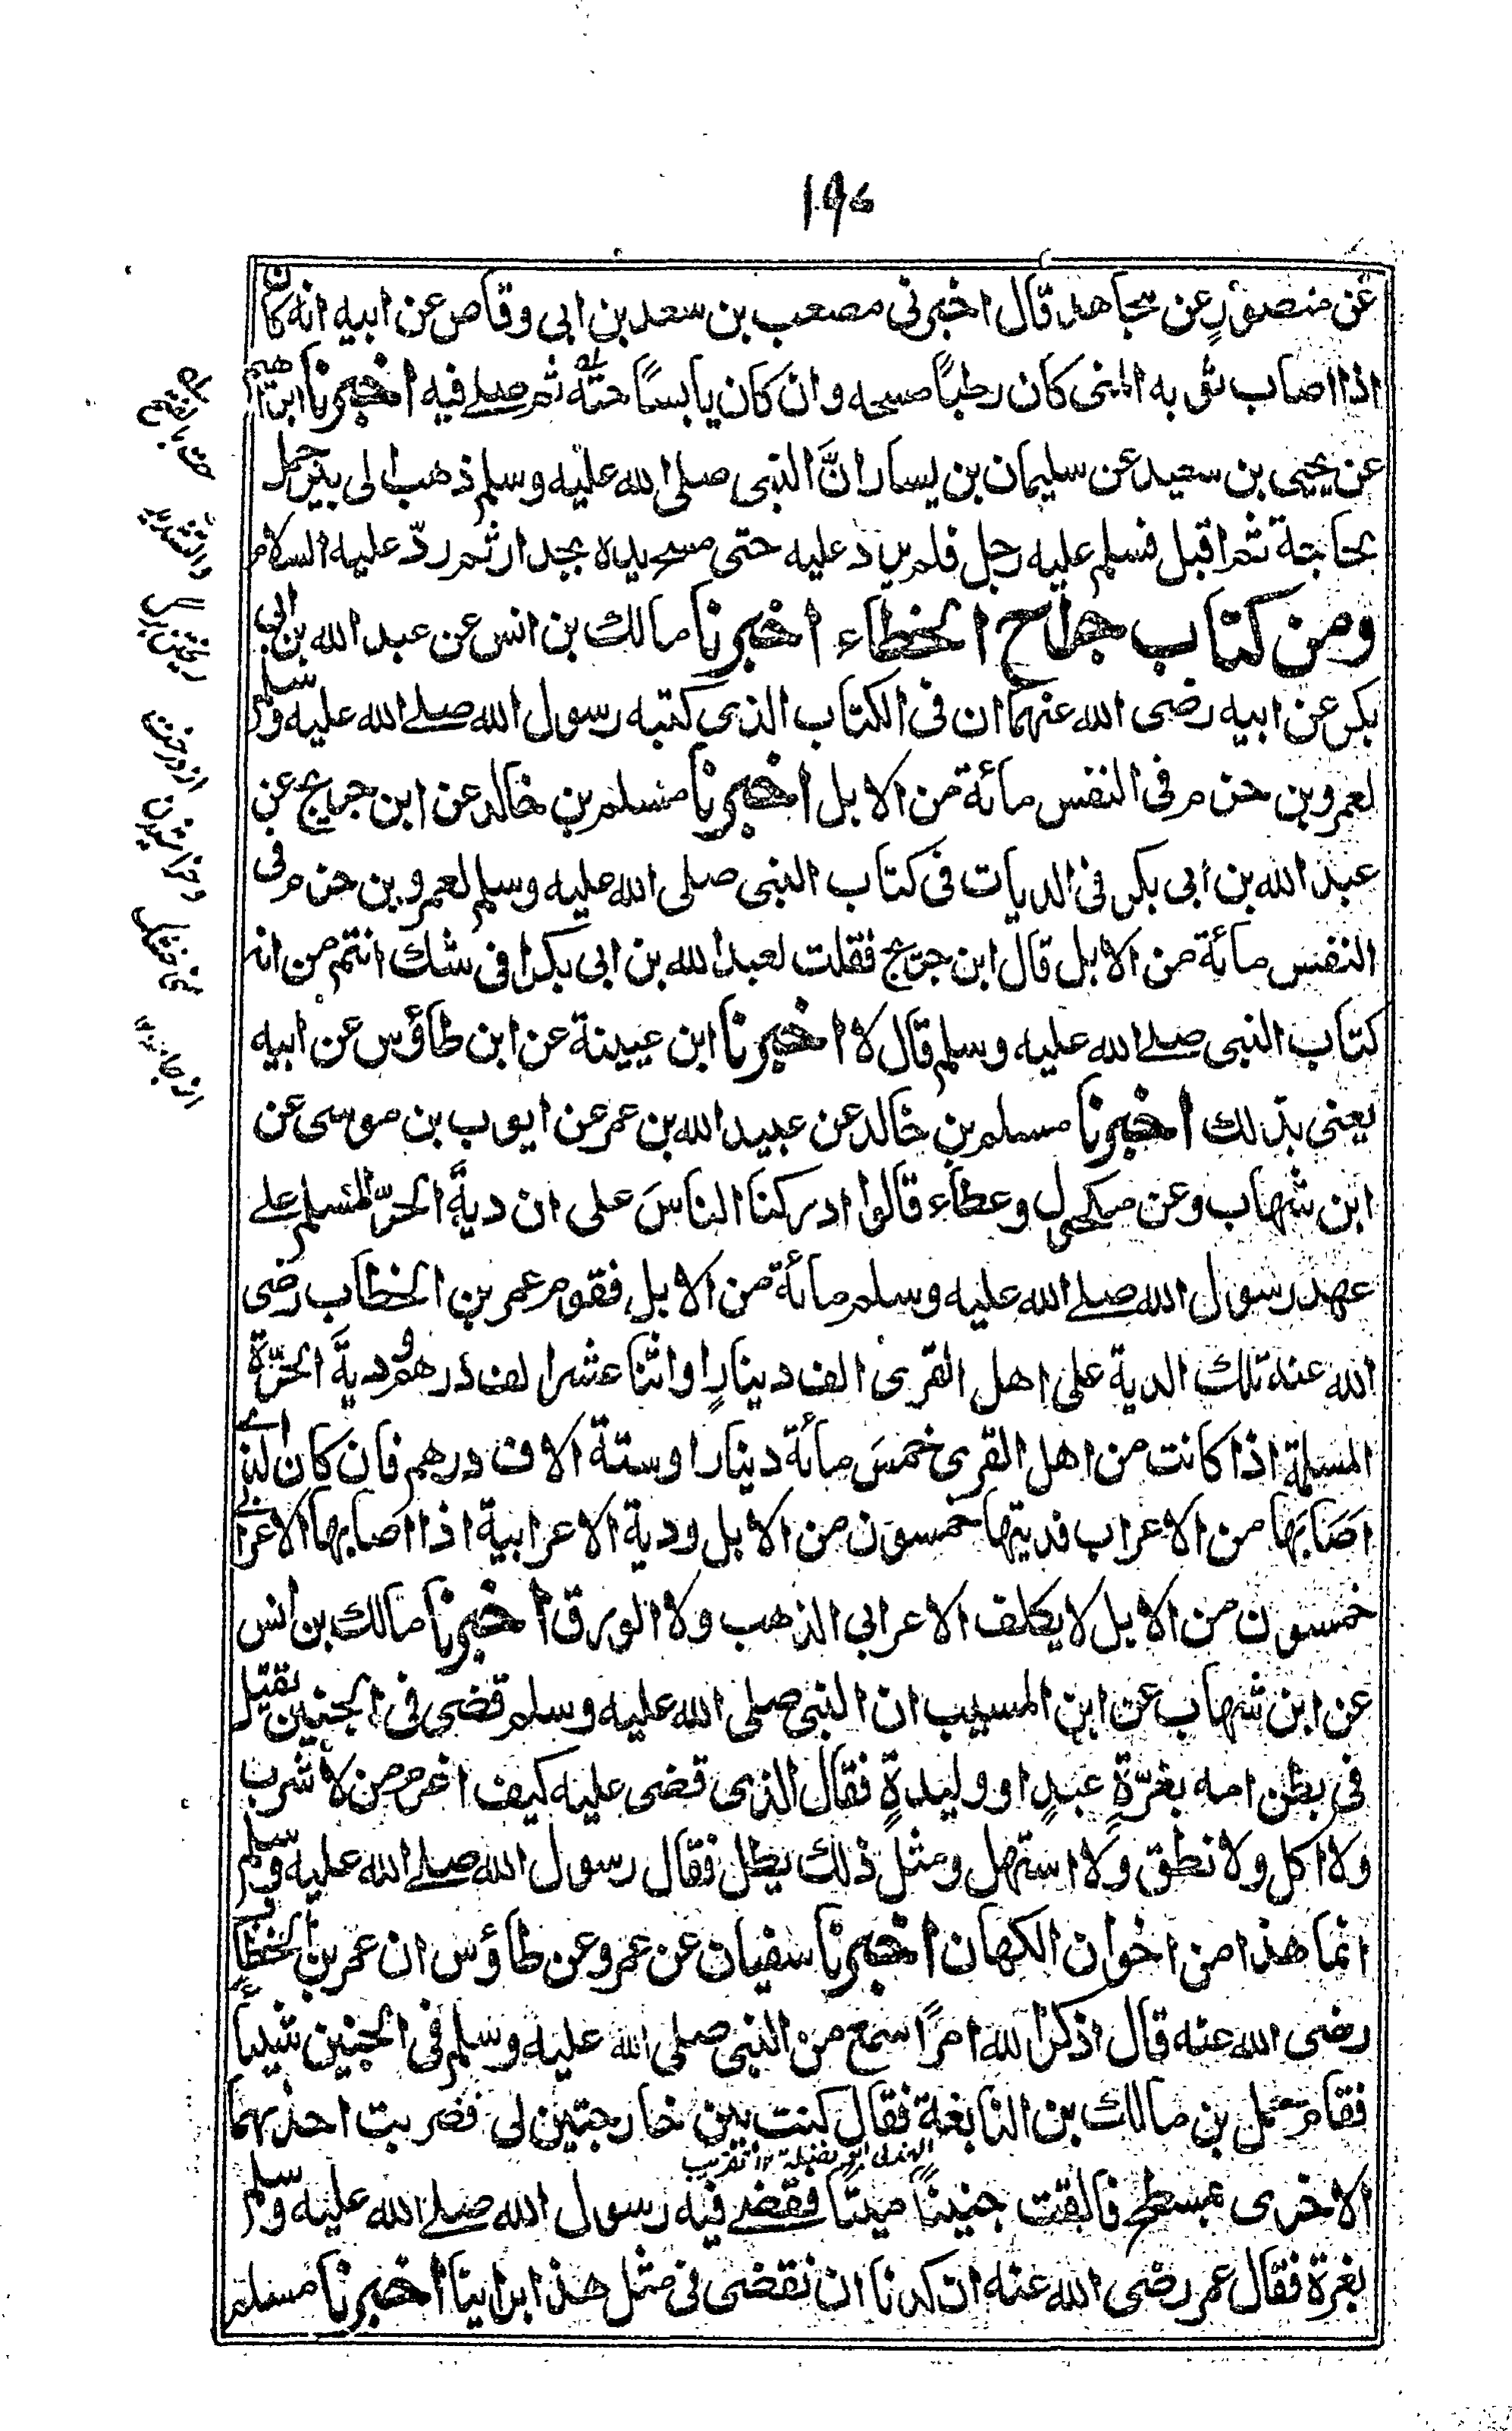 ۱۹۶
عن منصورٍ عن مجاهد قال اخبرنى مصعب بن سعد بن ابى وقاص عن ابيه انه كان
اذا اصاب ثوبه المنى كان رطبًا مسحه وان كان يابسًا حتّه ثم صلے فيه اخبرنا ابراهيم
عن يحيى بن سعيد عن سليمان بن يسار انَّ النبى صلى الله عليه وسلم ذهب الى بير جمل
بحاجة ثم اقبل فسلم عليه رجل فلم يرد عليه حتى مسح يده بجدار ثم ردّ عليه السلام
ومن كتاب جراح الخطاء اخبرنا مالك بن انس عن عبد الله بن ابى
بكر عن ابيه رضى الله عنهما ان فى الكتاب الذى كتبه رسول الله صلے الله عليه وسلم
لعمرو بن حزم فى النفس مائة من الابل اخبرنا مسلم بن خالد عن ابن جريج عن
عبد الله بن ابى بكر فى الديات فى كتاب النبى صلى الله عليه وسلم لعمرو بن حزم فى
النفس مائة من الابل قال ابن جريج فقلت لعبد الله بن ابى بكر افى شك انتم من انه
كتاب النبى صلے الله عليه وسلم قال لا اخبرنا ابن عيينة عن ابن طاؤس عن ابيه
يعنى بذلك اخبرنا مسلم بن خالد عن عبيد الله بن عمر عن ايوب بن موسى عن
ابن شهاب وعن مكحول وعطاء قالوا ادركنا الناسَ على ان ديةَ الحرّ المسلم علے
عهد رسول الله صلے الله عليه وسلم مائة من الابل فقوم عمر بن الخطاب رضى
الله عنه تلك الدية على اهل القرى الف دينارٍ او اثنا عشر الف درهم ودية الحرّة
المسلمة اذا كانت من اهل القرى خمسَ مائة دينار او ستة الاف درهم فان كان الذے
اصَابَها من الاعراب فديتها خمسون من الابل ودية الاعرابية اذا اصابها الاعرابے
خمسون من الابل لا يكلف الاعرابى الذهب ولا الورق اخبرنا مالك بن انس
عن ابن شهاب عن ابن المسيب ان النبى صلى الله عليه وسلم قضى فى الجنين يقتل
فى بطن امه بغرّةٍ عبدٍ او وليدةٍ فقال الذى قضى عليه كيف اغرم من لا شرب
ولا اكل ولا نطق ولا استهل ومثل ذلك يطل فقال رسول الله صلے الله عليه وسلم
انما هذا من اخوان الكهان اخبرنا سفيان عن عمرو عن طاؤس ان عمر بن الخطاب
رضى الله عنه قال اذكر الله امرًا سمع من النبى صلى الله عليه وسلم فى الجنين شيئًا
فقام حمل بن مالك بن النابغة فقال كنت بين خارجتين لى فضربت احدٰىهما
الهذلى ابو نضلة ۱۲ تقريب
الاخرى بمسطح فالقت جنينًا ميتًا فقضے فيه رسول الله صلے الله عليه وسلم
بغرة فقال عمر رضى الله عنه ان كدنا ان نقضى فى مثل هذا براينا اخبرنا مسلم